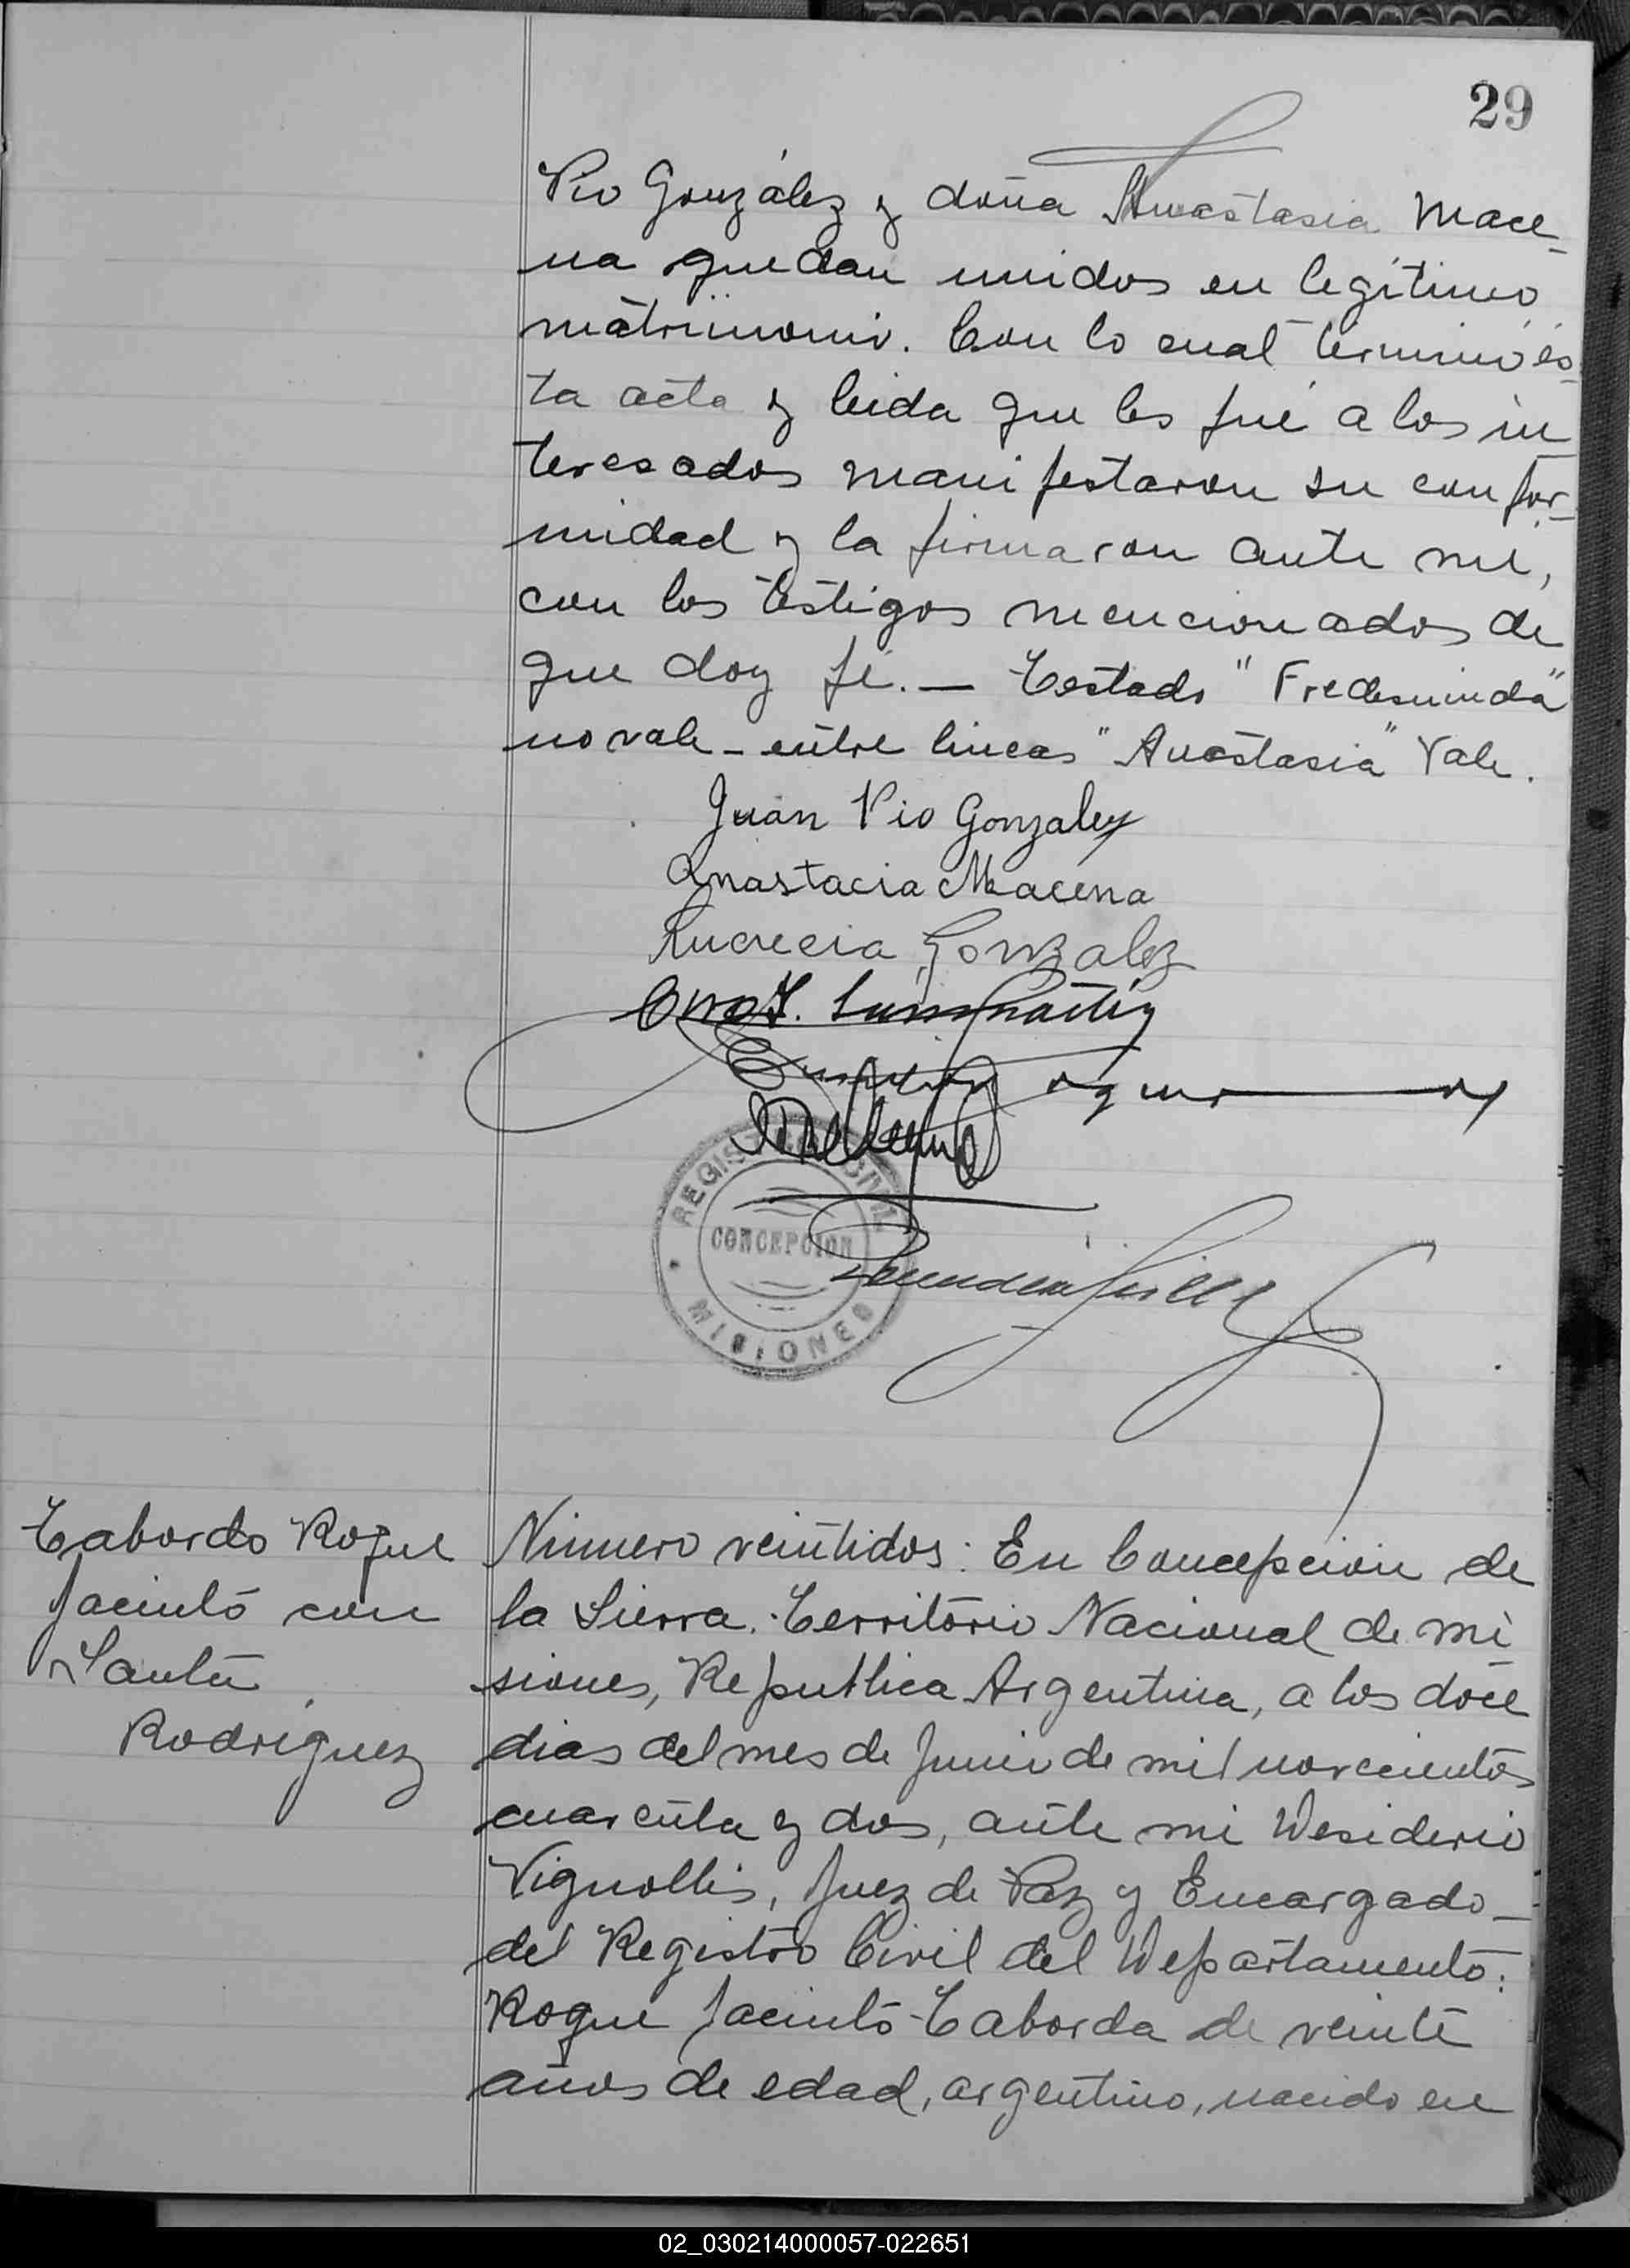 29
Pio González y doña Anastasia Mace-
na quedan unidos en legítimo
matrimonio. Con lo cual terminó és-
ta acta y leida que les fué a los in-
teresados manifestaron su confor-
midad y la firmaron ante mi,
con los testigos mencionados de
que doy fé. — Testado "Fredesminda"
no vale - entre lineas "Anastasia" Vale.
Juan Pio Gonzalez
Anastacia Macena
Lucrecia Gonzalez
REGISTRO CIVIL
CONCEPCION
MISIONES
Tabordo Roque
Jacinto con
Rodriguez
Número veintidos: En Concepción de
la Sierra. Territorio Nacional de Mi
siones, Republica Argentina, a los doce
dias del mes de Junio de mil novecientos
cuarenta y dos, ante mi Desiderio
Vignolles, Juez de Paz y Encargado
del Registro Civil del Departamento:
Roque Jacinto Taborda de veinte
años de edad, argentino, nacido en
02_030214000057-022651